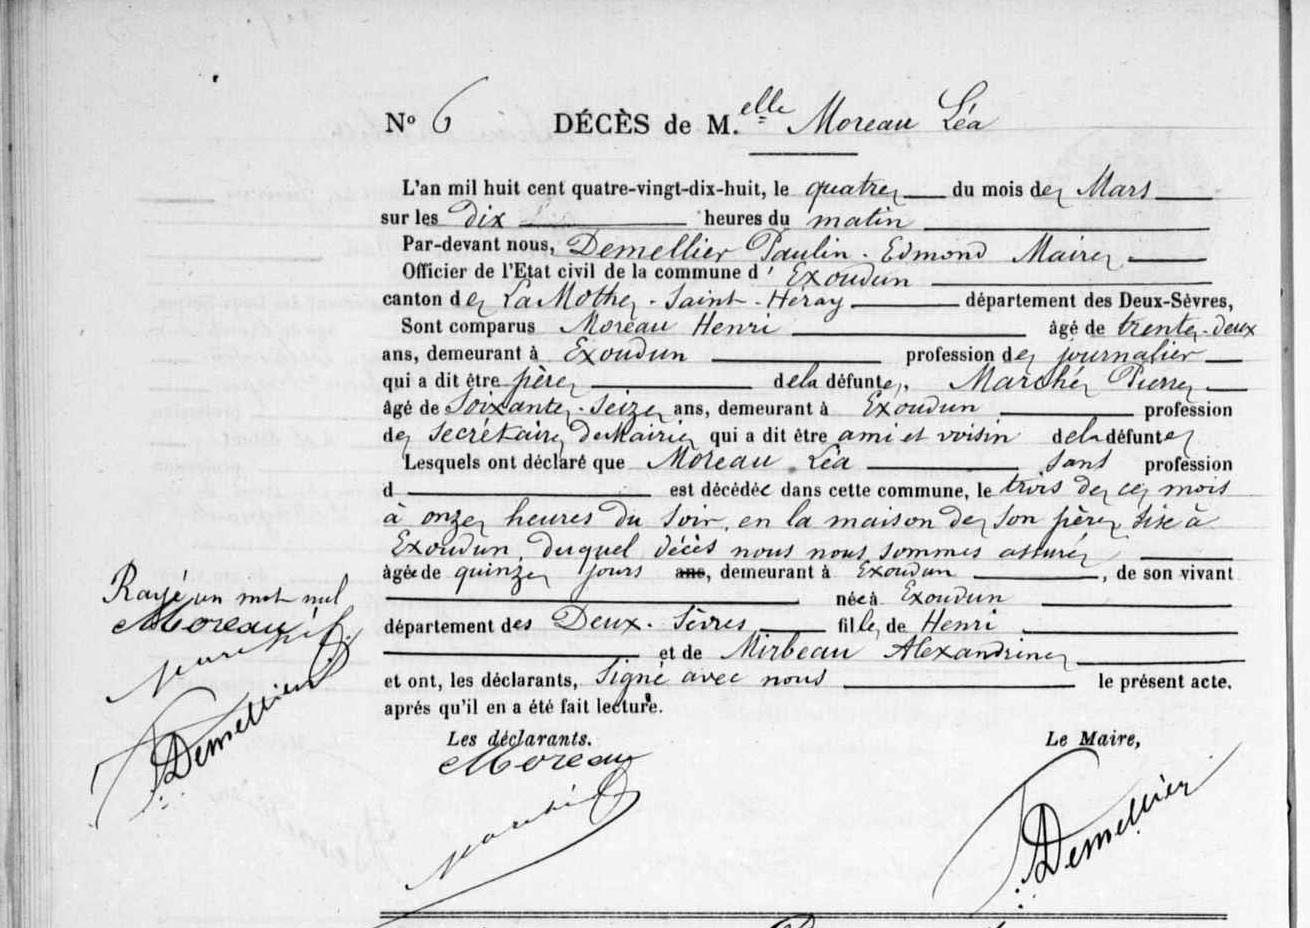 N° 6 DÉCÈS de M.elle Moreau Léa
L'an mil huit cent quatre-vingt-dix-huit, le quatre du mois de Mars
sur les dix heures du matin
Par-devant nous, Demellier Paulin-Edmond Maire
Officier de l'Etat civil de la commune d'Exoudun
canton de La Mothe-Saint-Héray département des Deux-Sèvres,
Sont comparus Moreau Henri âgé de trente-deux
ans, demeurant à Exoudun profession de journalier
qui a dit être père de la défunte, Marché Pierre
âgé de Soixante-Seize ans, demeurant à Exoudun profession
de Secrétaire de Mairie qui a dit être ami et voisin de la défunte
Lesquels ont déclaré que Moreau Léa sans profession
d est décédée dans cette commune, le trois de ce mois
à onze heures du soir, en la maison de son père sise à
Exoudun, duquel décès nous nous sommes assuré
âgée de quinze jours ans, demeurant à Exoudun, de son vivant
née à Exoudun
département des Deux-Sèvres fille de Henri
et de Mirbeau Alexandrine
et ont, les déclarants, Signé avec nous le présent acte.
aprés qu'il en a été fait lecture.
Rayé un mot nul
Moreau
Marché
Demellier
Les déclarants. Le Maire,
Moreau
Marché
Demellier